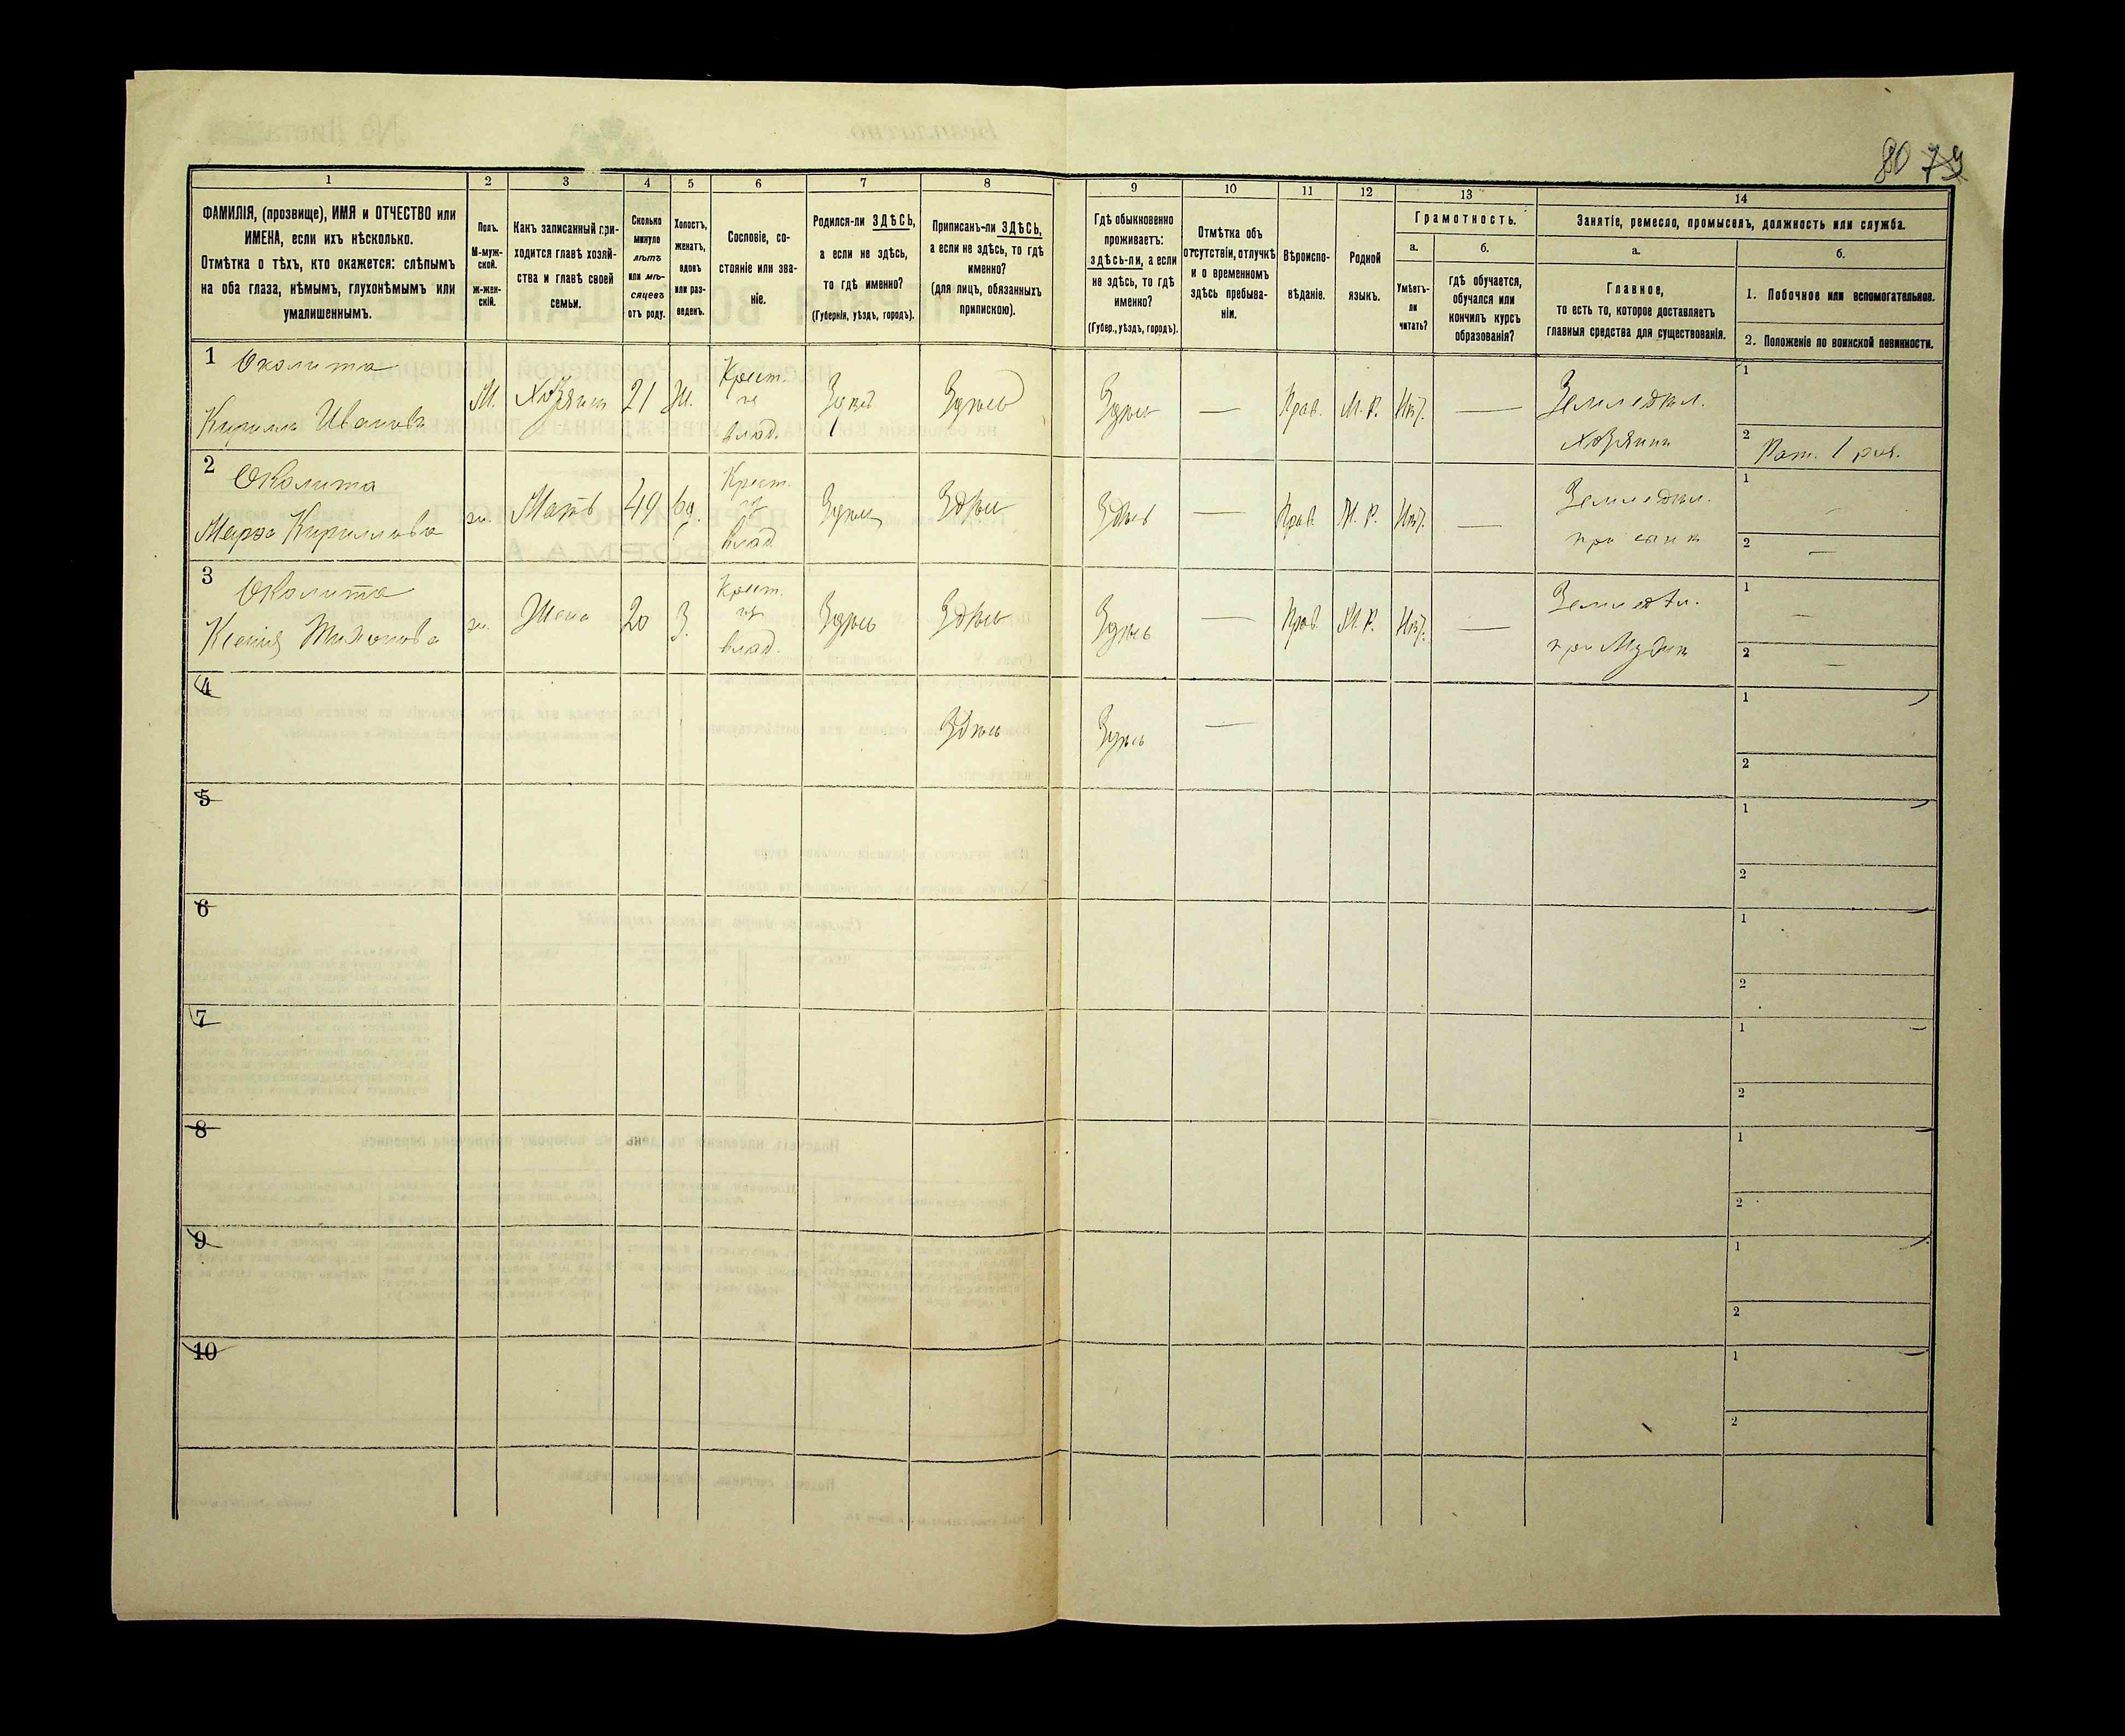 80 79
1
2
3
4
5
6
7
8
9
10
11
12
13
14
ФАМИЛІЯ, (прозвище), ИМЯ и ОТЧЕСТВО или
ИМЕНА, если ихъ нѣсколько.
Отмѣтка о тѣхъ, кто окажется: слѣпымъ
на оба глаза, нѣмымъ, глухонѣмымъ или
умалишеннымъ.
Полъ.
М-муж-
ской.
ж-жен-
скій.
Какъ записанный при-
ходится главѣ хозяй-
ства и главѣ своей
семьи.
Сколько
минуло
лѣтъ
или мѣ-
сяцевъ
отъ роду.
Холостъ,
женатъ,
вдовъ
или раз-
веденъ.
Сословіе, со-
стояніе или зва-
ніе.
Родился-ли ЗДѢСЬ,
а если не здѣсь,
то гдѣ именно?
(Губернія, уѣздъ, городъ).
Приписанъ-ли ЗДѢСЬ,
а если не здѣсь, то гдѣ
именно?
(для лицъ, обязанныхъ
припискою).
Гдѣ обыкновенно
проживаетъ:
здѣсь-ли, а если
не здѣсь, то гдѣ
именно?
(Губер., уѣздъ, городъ).
Отмѣтка объ
отсутствіи, отлучкѣ
и о временномъ
здѣсь пребыва-
ніи.
Вѣроиспо-
вѣданіе.
Родной
языкъ.
Грамотность.
а.
Умѣетъ-
ли
читать?
б.
гдѣ обучается,
обучался или
кончилъ курсъ
образованія?
Занятіе, ремесло, промыселъ, должность или служба.
а.
Главное,
то есть то, которое доставляетъ
главныя средства для существованія.
б.
1. Побочное или вспомогательное.
2. Положеніе по воинской повинности.
1 Околита
Кирилъ Ивановъ
М. Хозяинъ 21 Ж. Крест. влад. Здѣсь Здѣсь Здѣсь — Прав. М. Р. Нѣт. — Земледѣл.
Хозяинъ
1
2 Рат. 1 раз.
2 Околита
Марѳа Кириллова
ж. Мать 49 вд. Крест. влад. Здѣсь Здѣсь Здѣсь — Прав. М. Р. Нѣт. — Земледѣл.
при сынѣ
1 —
2 —
3 Околита
Ксенія Тихонова
ж. Жена 20 З. Крест. влад. Здѣсь Здѣсь Здѣсь — Прав. М. Р. Нѣт. — Земледѣл.
при Мужѣ
1 —
2 —
4 Здѣсь Здѣсь —
1
2
5
1
2
6
1
2
7
1
2
8
1
2
9
1
2
10
1
2